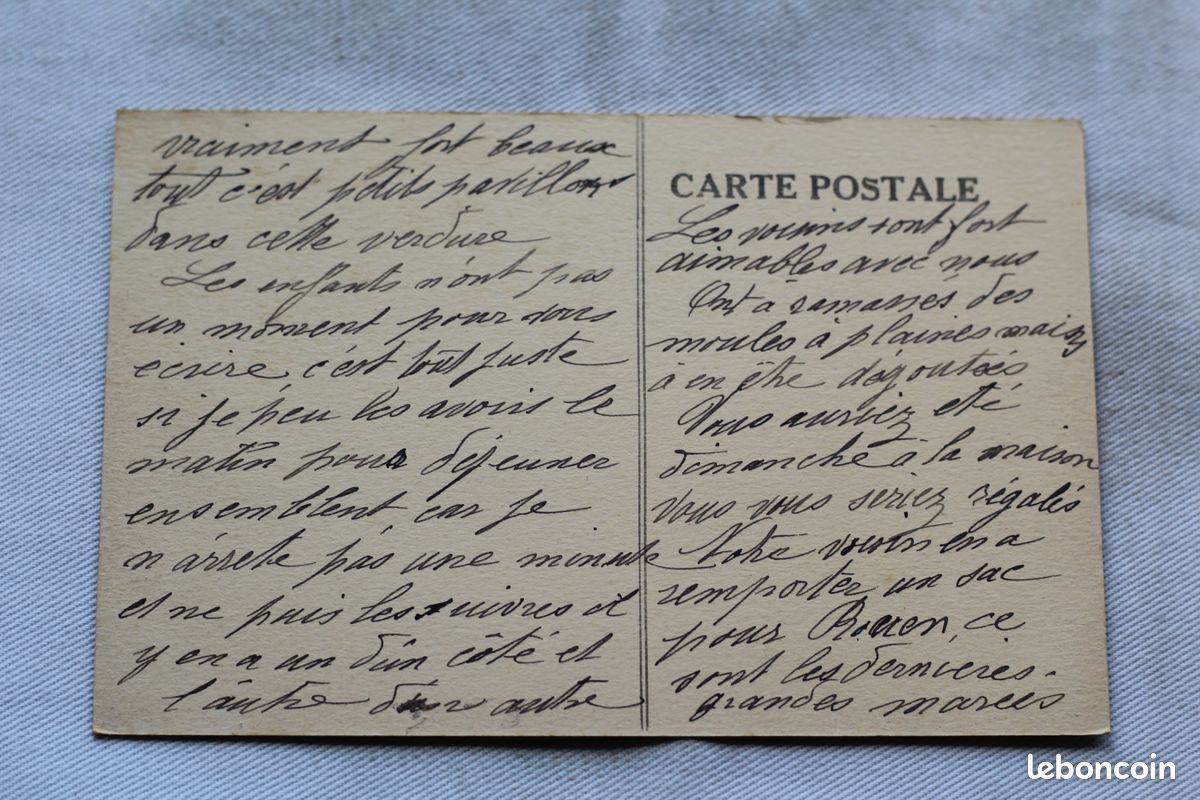 vraiment fort beaux
tout c'est petits pavillons
dans cette verdure
Les enfants n'ont pas
un moment pour vous
écrire, c'est tout juste
si je peu les avoirs le
matin pour déjeuner
ensemblent, car je
n'arrete pas une minute
et ne puis les suivres il
y en a un d'un côté et
l'autre d'un autre
CARTE POSTALE
Les voisins sont fort
aimables avec nous
Ont a ramasses des
moules à plaines mains
à en être dégoutées
Vous auriez été
dimanche à la maison
vous vous seriez régalés
Notre voisin en a
remporter un sac
pour Rouen, ce
sont les dernieres
grandes marées
leboncoin